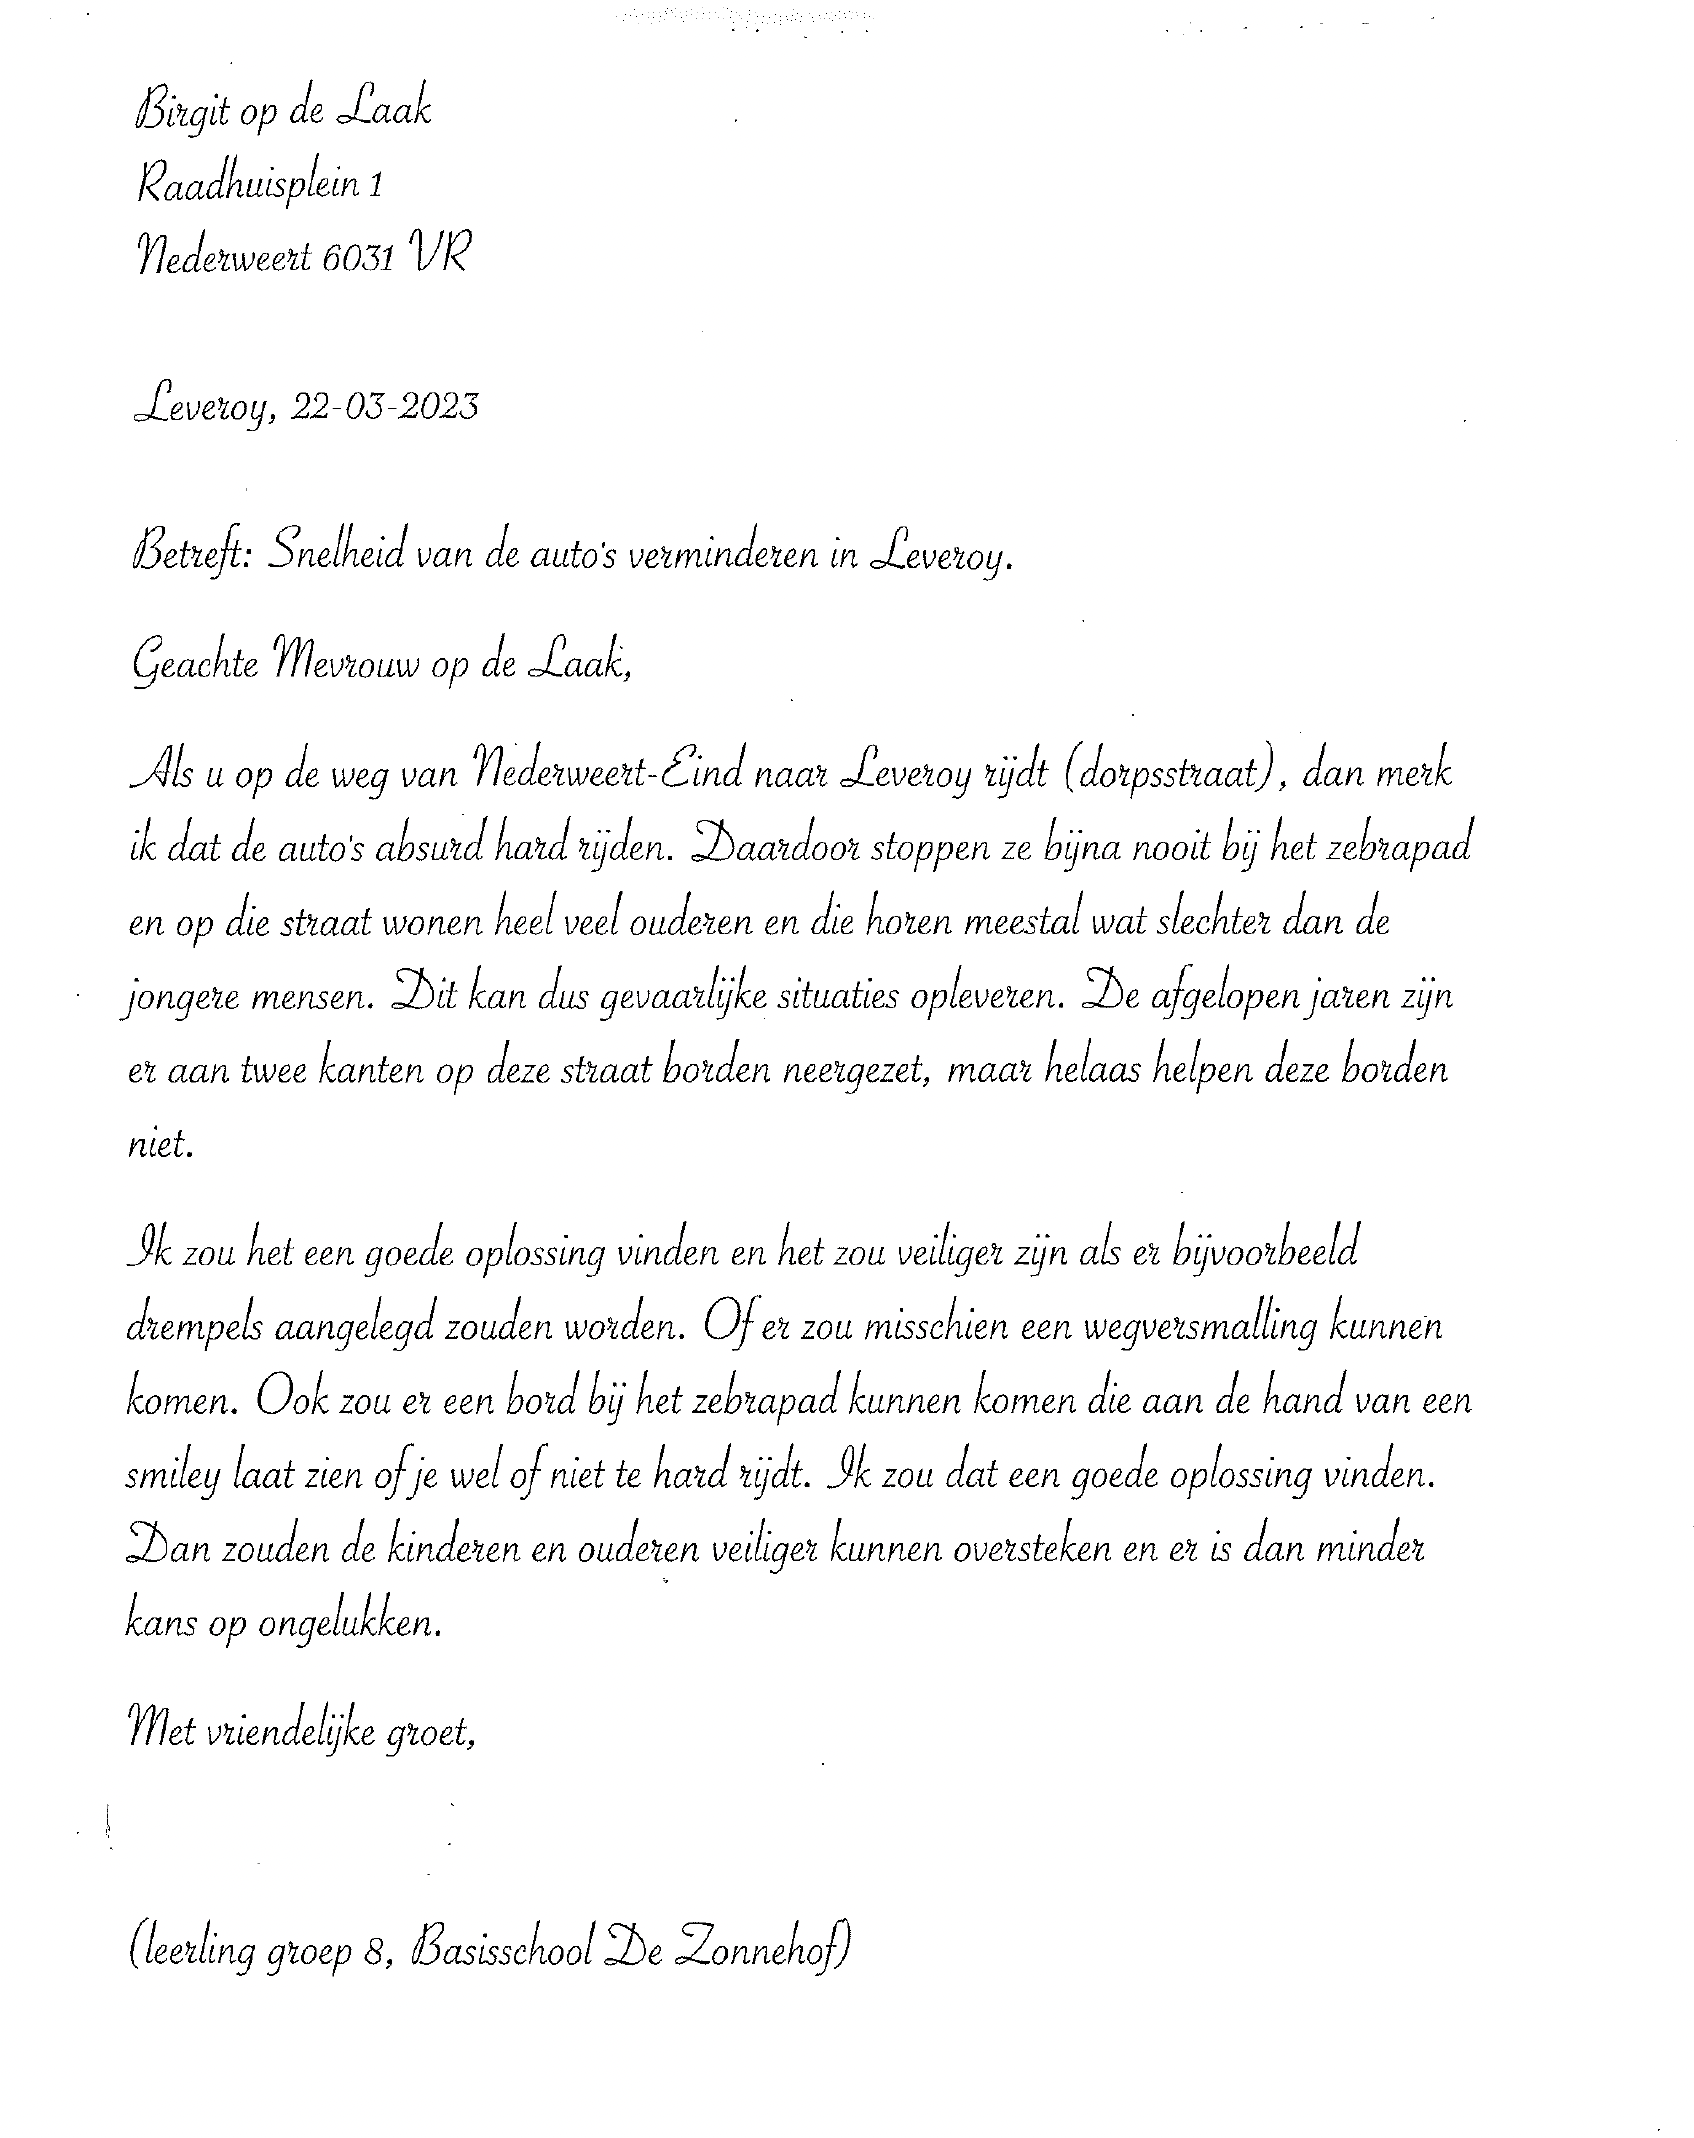 Birgit op de Laak
Raadhuisplein 1
Nederweert 6031 VR
Leveroy, 22-03-2023
Betreft: Snelheid van de auto's verminderen in Leveroy.
Geachte Mevrouw op de Laak,
Als u op de weg van Nederweert-Eind naar Leveroy rijdt (dorpsstraat), dan merk
ik dat de auto's absurd hard rijden. Daardoor stoppen ze bijna nooit bij het zebrapad
en op die straat wonen heel veel ouderen en die horen meestal wat slechter dan de
jongere mensen. Dit kan dus gevaarlijke situaties opleveren. De afgelopen jaren zijn
er aan twee kanten op deze straat borden neergezet, maar helaas helpen deze borden
niet.
Ik zou het een goede oplossing vinden en het zou veiliger zijn als er bijvoorbeeld
drempels aangelegd zouden worden. Of er zou misschien een wegversmalling kunnen
komen. Ook zou er een bord bij het zebrapad kunnen komen die aan de hand van een
smiley laat zien of je wel of niet te hard rijdt. Ik zou dat een goede oplossing vinden.
Dan zouden de kinderen en ouderen veiliger kunnen oversteken en er is dan minder
kans op ongelukken.
Met vriendelijke groet,
(leerling groep 8, Basisschool De Zonnehof)